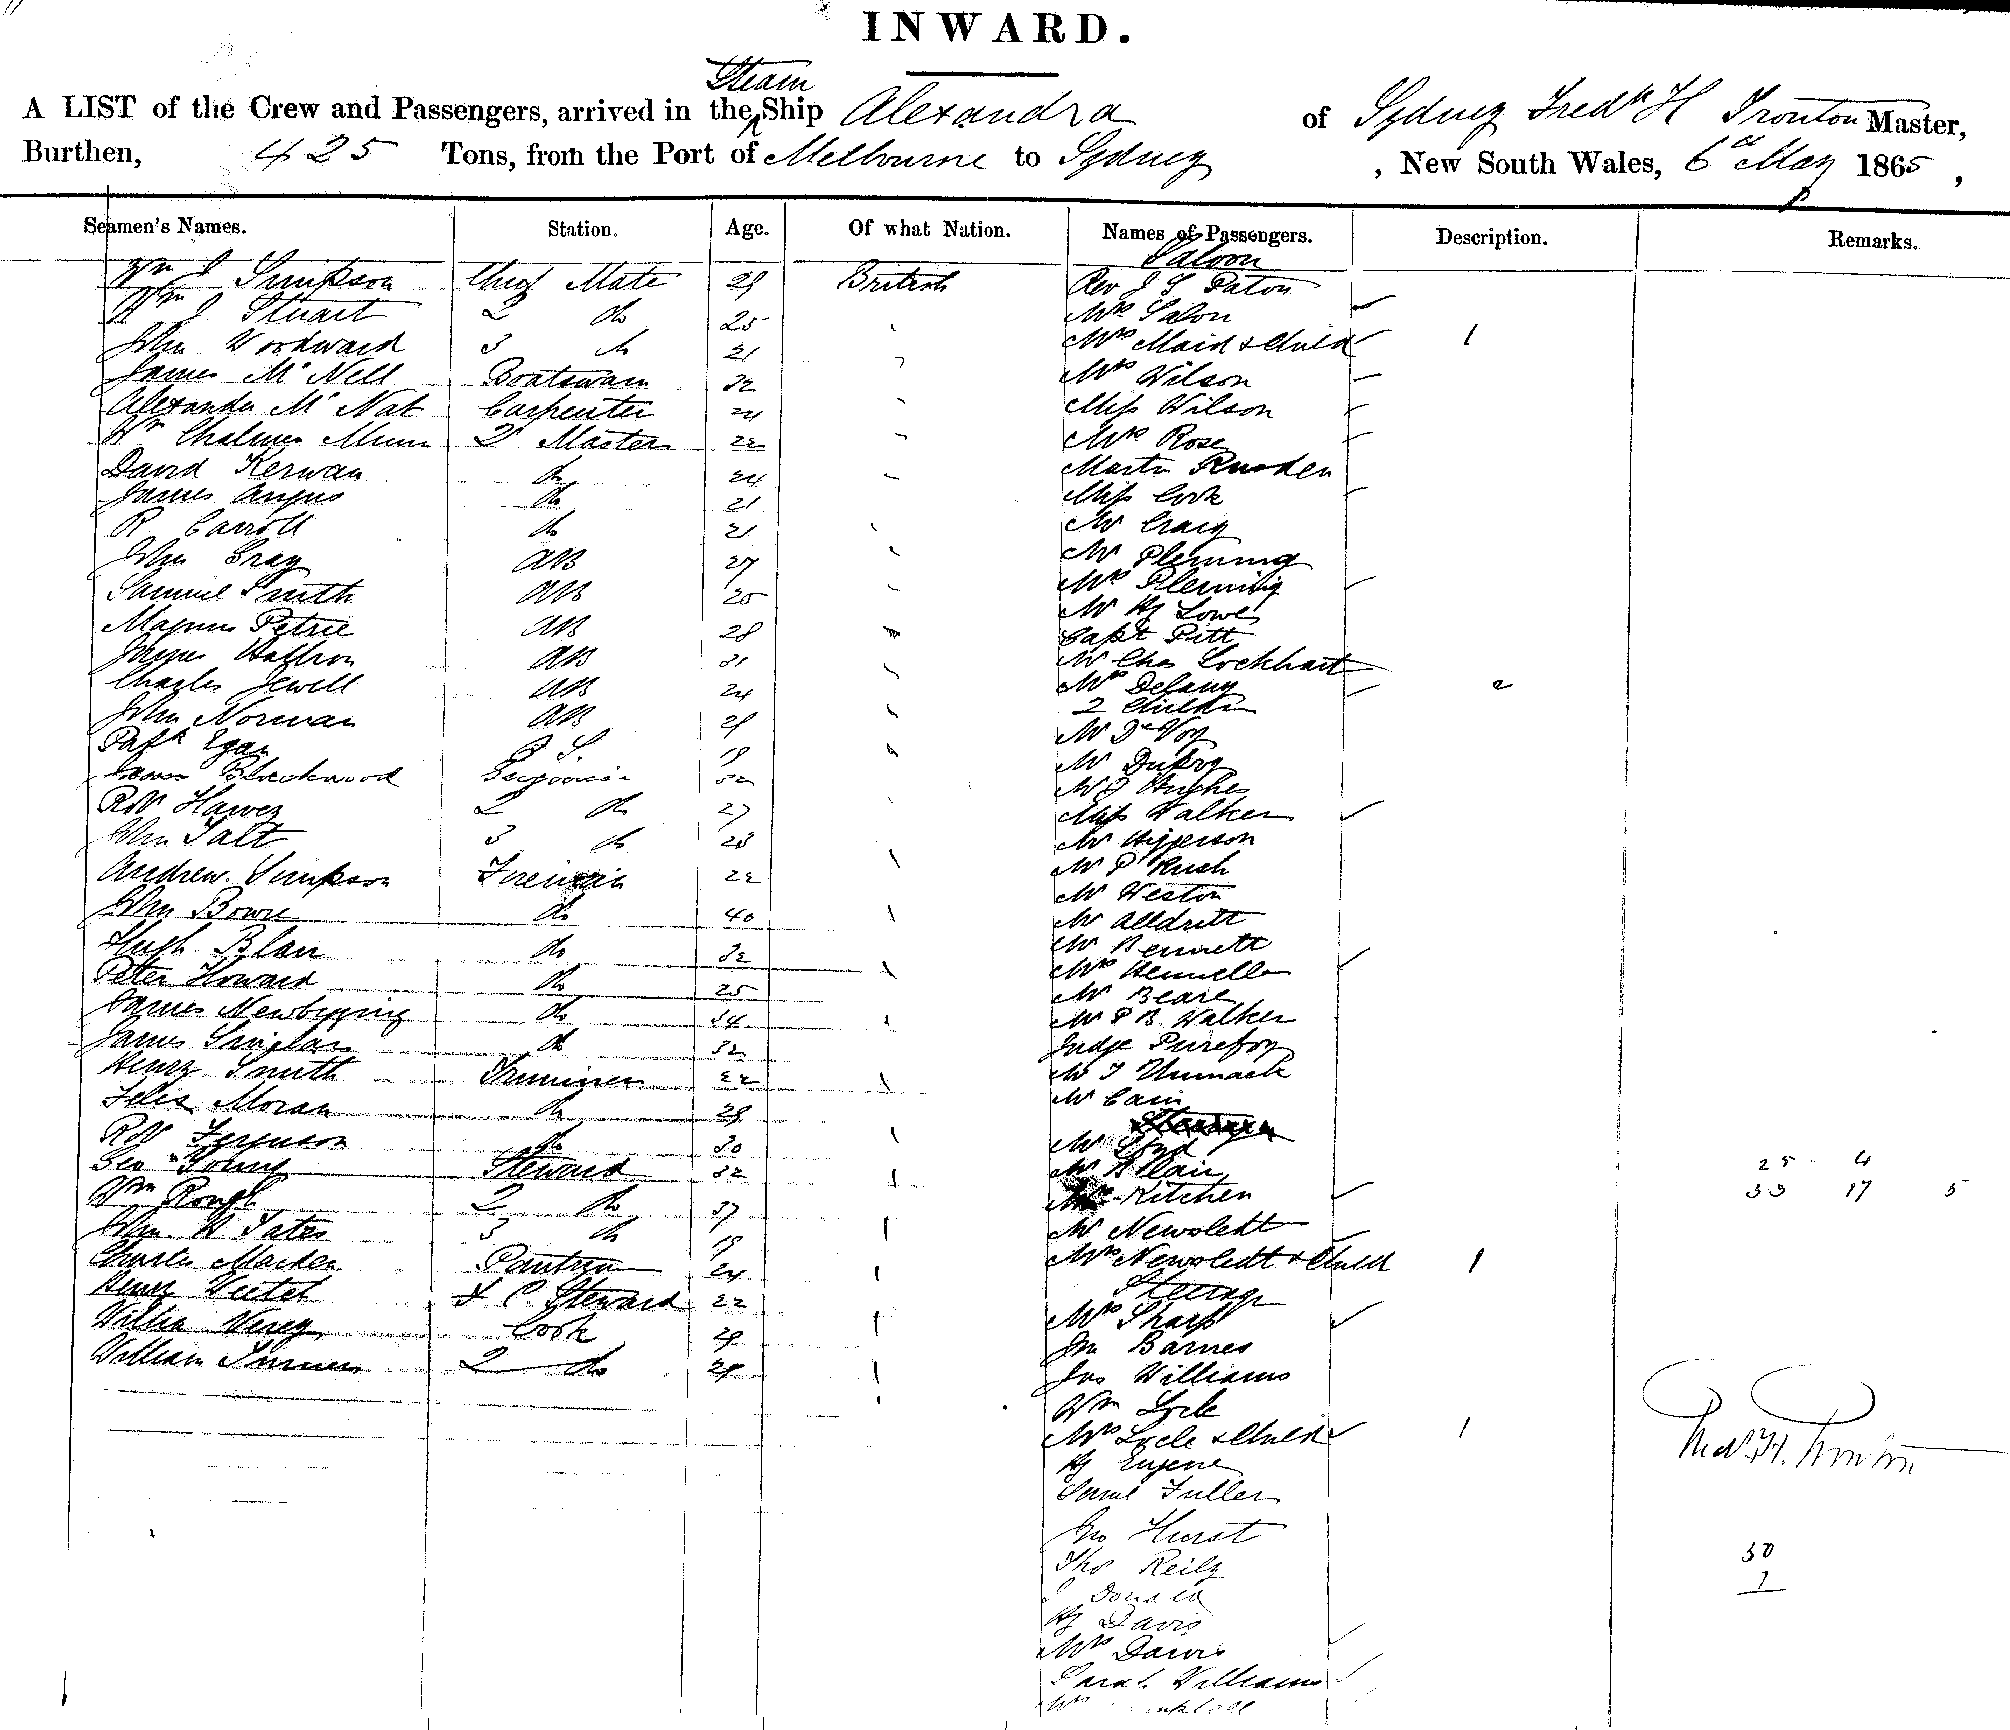 INWARD.
Steam
A LIST of the Crew and Passengers, arrived in the Ship Alexandra of Sydney Fredk H Trouton Master,
Burthen, 425 Tons, from the Port of Melbourne to Sydney, New South Wales, 6th May 1865,
Seamen's Names. Station. Age. Of what Nation. Names of Passengers. Description. Remarks.
Saloon
Wm J Simpson Chief Mate 29 British Rev J G Paton
Wm J Stuart 2 do 25 Mrs
John Woodward 3 do 21 Mrs Maid & Child 1
James McNell Boatswain 32 Mrs Wilson
Alexander McNab Carpenter 24 Miss Wilson
Wm Chalmers Munn Q Master 22 Mrs Rose
David Kerwan do 24 Master Rusden
James Angus do 21 Miss Cook
R Carroll do 21 Mr Craig
John Gray AB 27 Mr Fleming
Samuel Smith AB 25 Mrs Fleming
Mr Hy Lowe
Magnus Petrie AB 28 Capt Pitt
James AB 31 Mr Chas Lockhart
Charles Jewell AB 24 Mrs Delany 2
2 Children
John Norman AB 29 Mr De Voy
Patk Egan O S. 19 Mr
James Blackwood Engineer 32 Mr J Hughes
Robt 2 do 27 Miss Walker
John Salt 3 do 28 Mr
Mr P Rush
Andrew Simpson Fireman 22 Mr Weston
John Bowie do 40 Mr Alldritt
Mr Bennett
Hugh Blair do 32 Mrs
Peter Howard do 25 Mr Beare
James Newbigging do 34 Mr P B Walker
James Sinclair do 32 Judge Purefoy
Henry Smith Trimmer 22 Mr T Unmack
Felix Moran do 28 Mr Cain
Robt Ferguson do 30 Mr
Geo Young Steward 32 Mr Allair 25 4
Wm Rough 2 do 37 Mrs Kitchen 33 17 5
John W Yates 3 do 19 Mr Newsledt
Charles Macken Pantry 24 Mrs Newsledt & Child 1
Henry F C Steward 22 Steerage
Mrs Sharp
Cook 29 Jn Barnes
William Turner 2 do 29 Jas Williams
Wm Lyle
Mrs Lyle & Child 1
Fredk H. Trouton
Hy Eugene
Saml Fuller
Jno Hurst
Thos Reily 30
1
Hy Davis
Mrs Davis
Sarah Williams